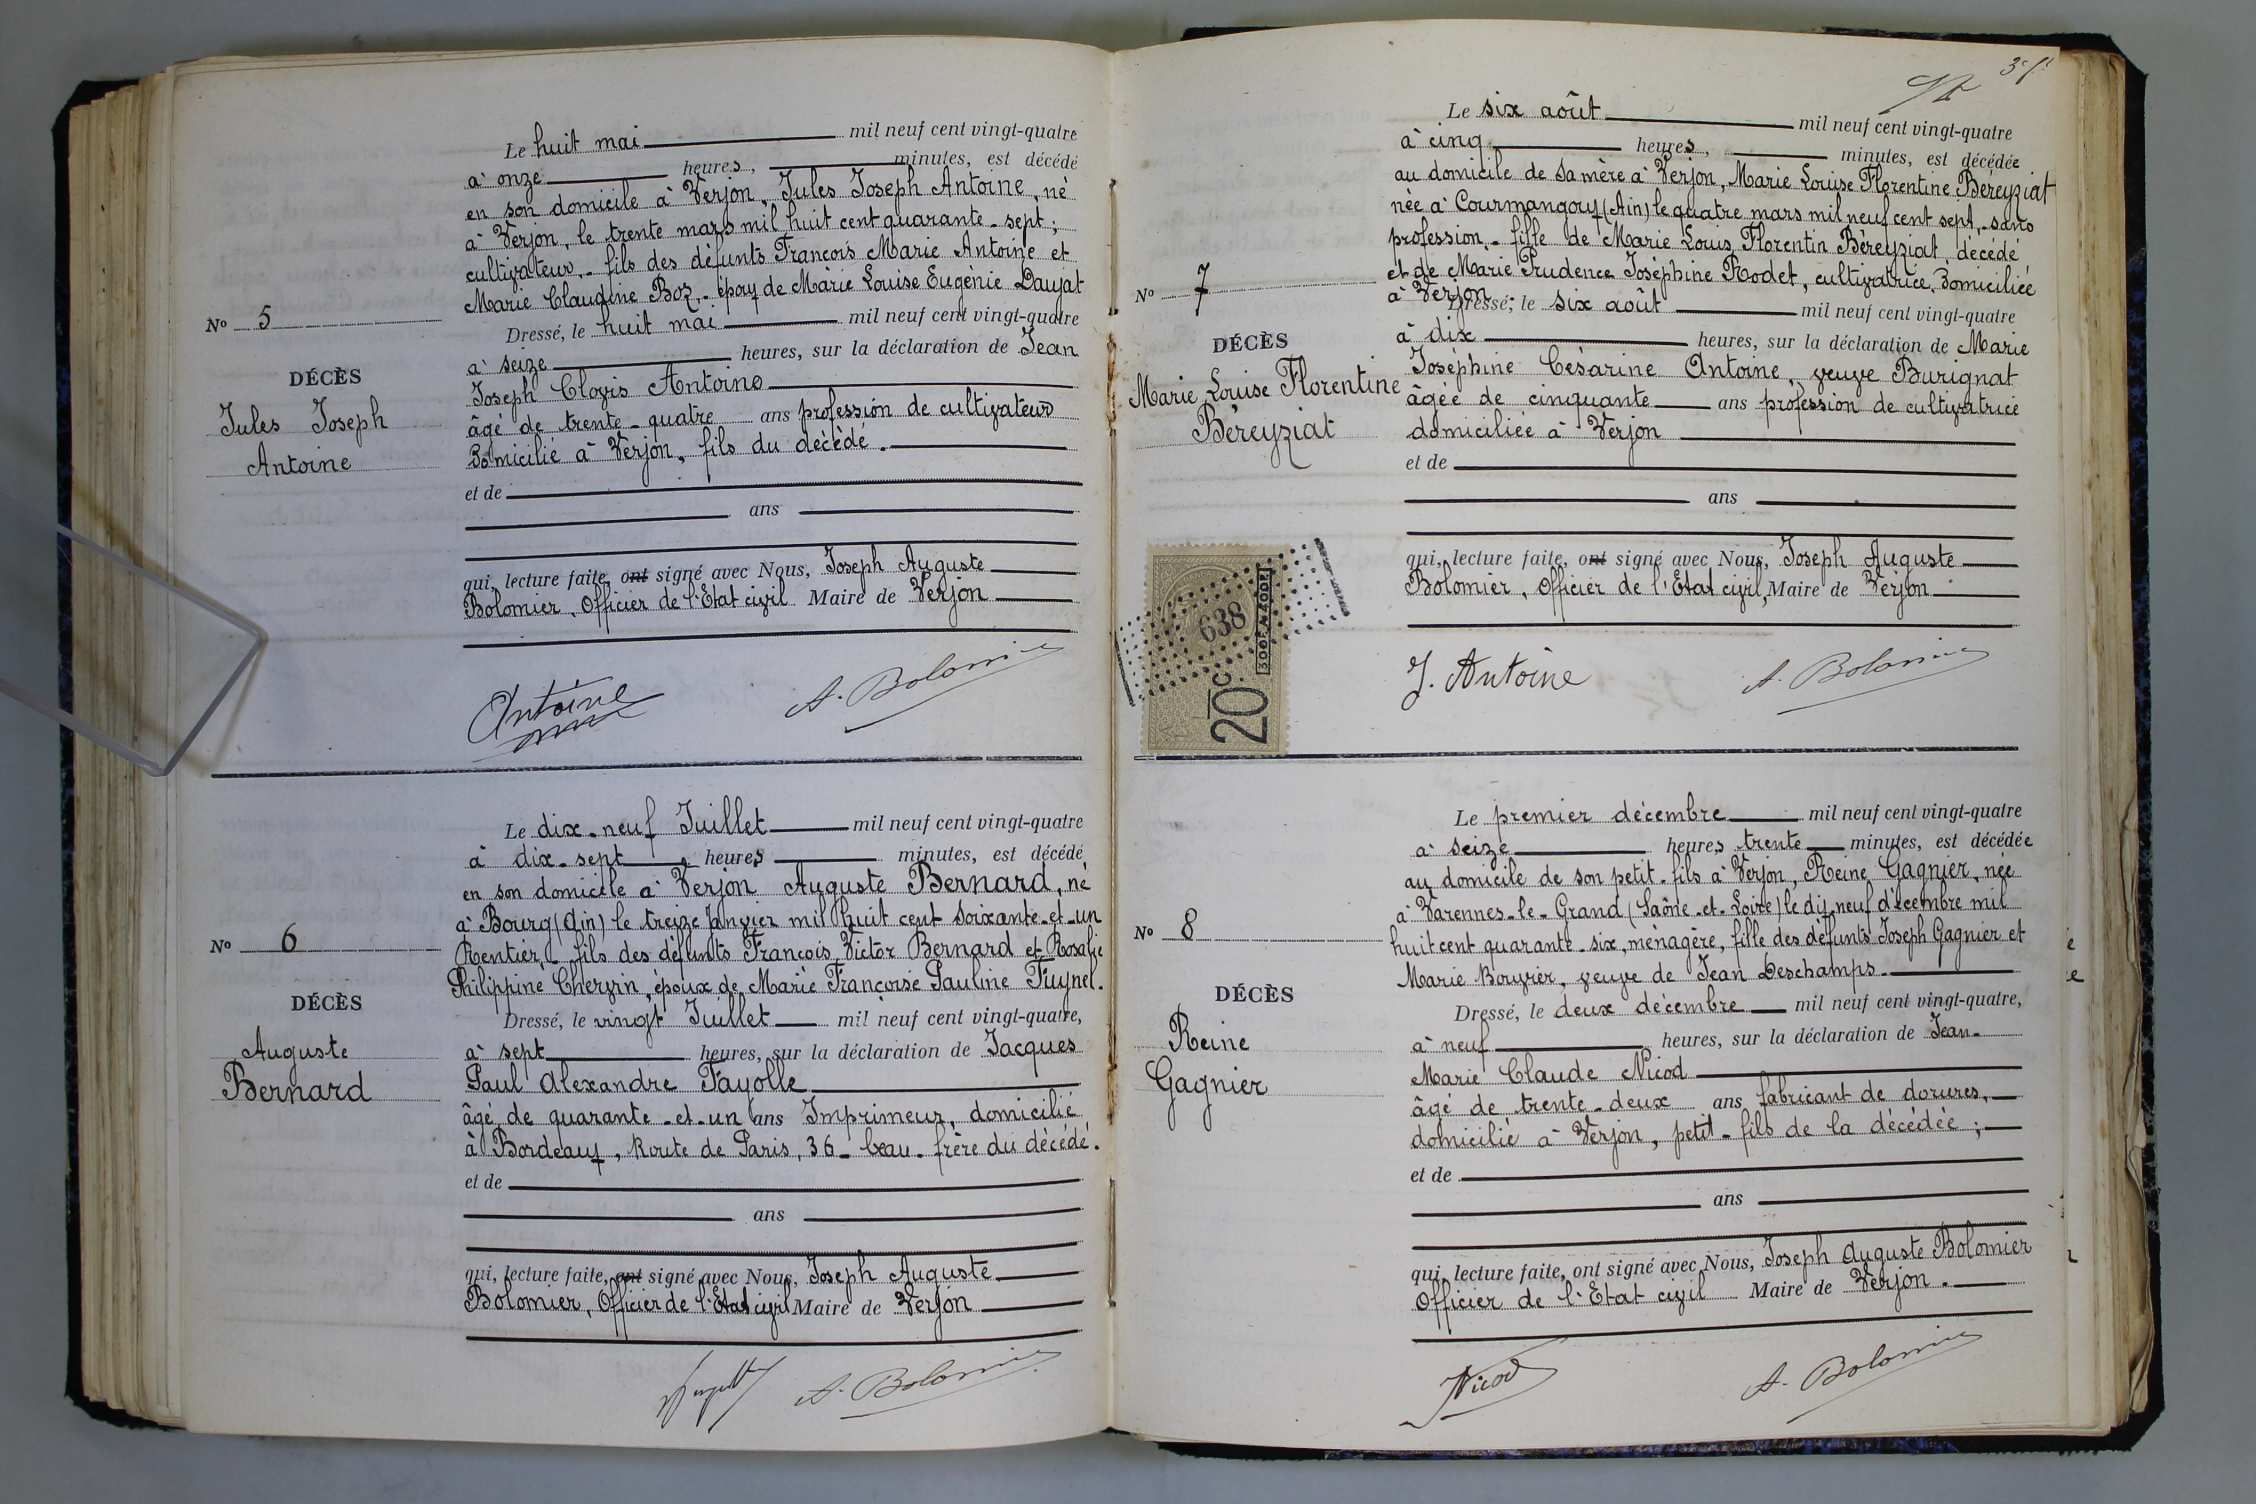 Le huit mai mil neuf cent vingt-quatre
à onze heures, minutes, est décédé
en son domicile à Verjon, Jules Joseph Antoine, né
à Verjon, le trente mars mil huit cent quarante-sept;
cultivateur,- fils des défunts François Marie Antoine et
Marie Claudine Boz,- époux de Marie Louise Eugènie Daujat
No 5
Dressé, le huit mai mil neuf cent vingt-quatre
à seize heures, sur la déclaration de Jean
DÉCÈS
Joseph Clovis Antoine
Jules Joseph
Antoine
âgé de trente-quatre ans profession de cultivateur
domicilié à Verjon, fils du décédé.
et de
ans
qui, lecture faite, ont signé avec Nous, Joseph Auguste
Bolomier, Officier de l'Etat civil Maire de Verjon
Antoine
A. Bolomier
Le dix-neuf Juillet mil neuf cent vingt-quatre
à dix-sept heures minutes, est décédé
en son domicile à Verjon Auguste Bernard, né
à Bourg (Ain) le treize Janvier mil huit cent soixante-et-un
No 6
Rentier,- fils des défunts François Victor Bernard et Rosalie
Philippine Chervin, époux de Marie Françoise Pauline Fuynel.
DÉCÈS
Dressé, le vingt Juillet mil neuf cent vingt-quatre,
Auguste
Bernard
à sept heures, sur la déclaration de Jacques
Paul Alexandre Fayolle
âgé de quarante-et-un ans Imprimeur, domicilié
à Bordeaux, Route de Paris, 36- beau-frère du décédé.
et de
ans
qui, lecture faite, ont signé avec Nous, Joseph Auguste
Bolomier, Officier de l'Etat civil Maire de Verjon
A. Bolomier
Le six août mil neuf cent vingt-quatre
à cinq heures, minutes, est décédée
au domicile de sa mère à Verjon, Marie Louise Florentine Béreyziat
née à Courmangoux (Ain) le quatre mars mil neuf cent sept,-sans
profession,- fille de Marie Louis Florentin Béreyziat, décédé
et de Marie Prudence Joséphine Rodet, cultivatrice, domiciliée
à Verjon.
No 7
Dressé, le six août mil neuf cent vingt-quatre
DÉCÈS
à dix heures, sur la déclaration de Marie
Marie Louise Florentine
Béreyziat
Joséphine Césarine Antoine, veuve Burignat
âgée de cinquante ans profession de cultivatrice
domiciliée à Verjon
et de
ans
638
20c
qui, lecture faite, ont signé avec Nous, Joseph Auguste
Bolomier, Officier de l'Etat civil, Maire de Verjon
J. Antoine
A. Bolomier
Le premier décembre mil neuf cent vingt-quatre
à seize heures trente minutes, est décédée
au domicile de son petit-fils à Verjon, Reine Gagnier, née
à Varennes-le-Grand (Saône-et-Loire) le dix neuf décembre mil
No 8
huit cent quarante-six, ménagère, fille des défunts Joseph Gagnier et
Marie Bouvier, veuve de Jean Deschamps.
DÉCÈS
Dressé, le deux décembre mil neuf cent vingt-quatre,
Reine
Gagnier
à neuf heures, sur la déclaration de Jean-
Marie Claude Nicod
âgé de trente-deux ans fabricant de dorures,
domicilié à Verjon, petit-fils de la décédée;
et de
ans
qui, lecture faite, ont signé avec Nous, Joseph Auguste Bolomier
Officier de l'Etat civil Maire de Verjon.
Nicod
A. Bolomier